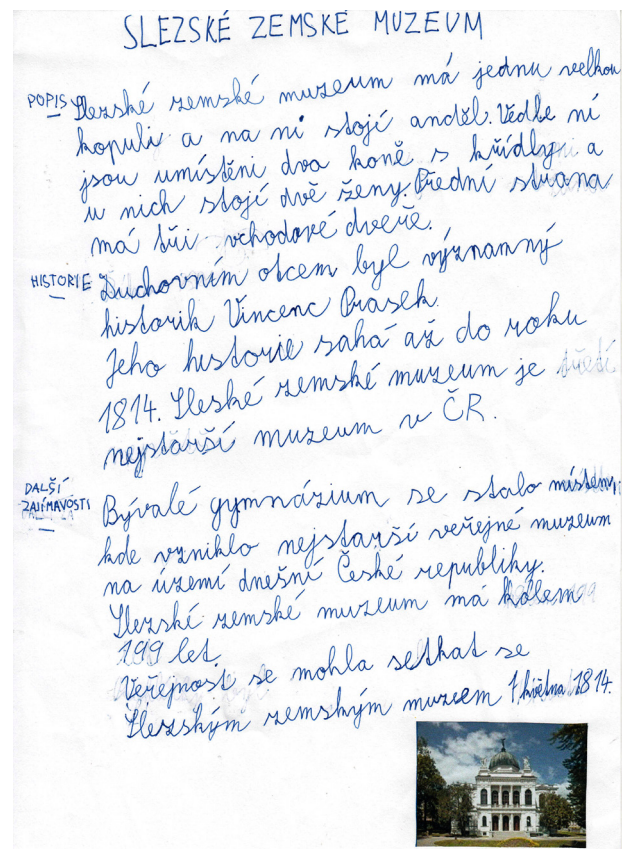 SLEZSKÉ ZEMSKÉ MUZEUM
POPIS Slezské zemské muzeum má jednu velkou
kopuli a na ni stojí anděl. Vedle ní
jsou umístěni dva koně s křídlyn a
u nich stojí dvě ženy. Přední strana
má tři vchodové dveře.
HISTORIE Duchovním otcem byl významný
historik Vincenc Prasek.
Jeho historie sahá až do roku
1814. Sleské zemské muzeum je třetí
nejstarší muzeum v ČR.
DALŠÍ
ZAJÍMAVOSTI
Bývalé gymnázium se stalo místem,
kde vzniklo nejstarší veřejné muzeum
na území dnešní České republiky.
Slezské zemské muzeum má kolem
199 let.
Veřejnost se mohla setkat se
Slezským zemským muzeem 1 května 1814.